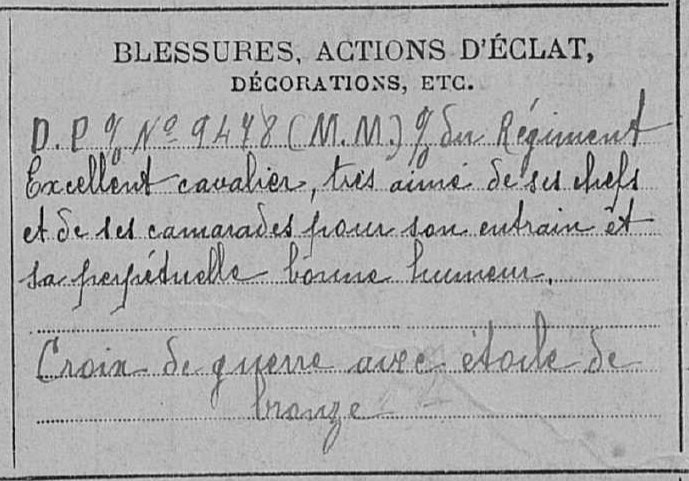 BLESSURES, ACTIONS D'ÉCLAT,
DÉCORATIONS, ETC.
D.P % Nº 9478 (M.M.) % du Régiment
Excellent cavalier, très aimé de ses chefs
et de ses camarades pour son entrain et
sa perpétuelle bonne humeur.
Croix de guerre avec étoile de
bronze